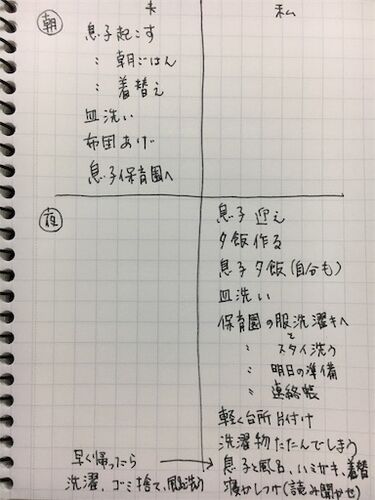 夫 私
朝
息子起こす
〃 朝ごはん
〃 着替え
皿洗い
布団あげ
息子保育園へ
夜
息子 迎え
夕飯作る
息子 夕飯(自分も)
皿洗い
保育園の服洗濯きへ
〃 と スタイ洗う
〃 明日の準備
〃 連絡帳
軽く台所片付け
洗濯物たたんでしまう
早く帰ったら → 息子と風呂、ハミガキ、着替
洗濯、ゴミ捨て、風呂洗い 寝かしつけ(読み聞かせ)